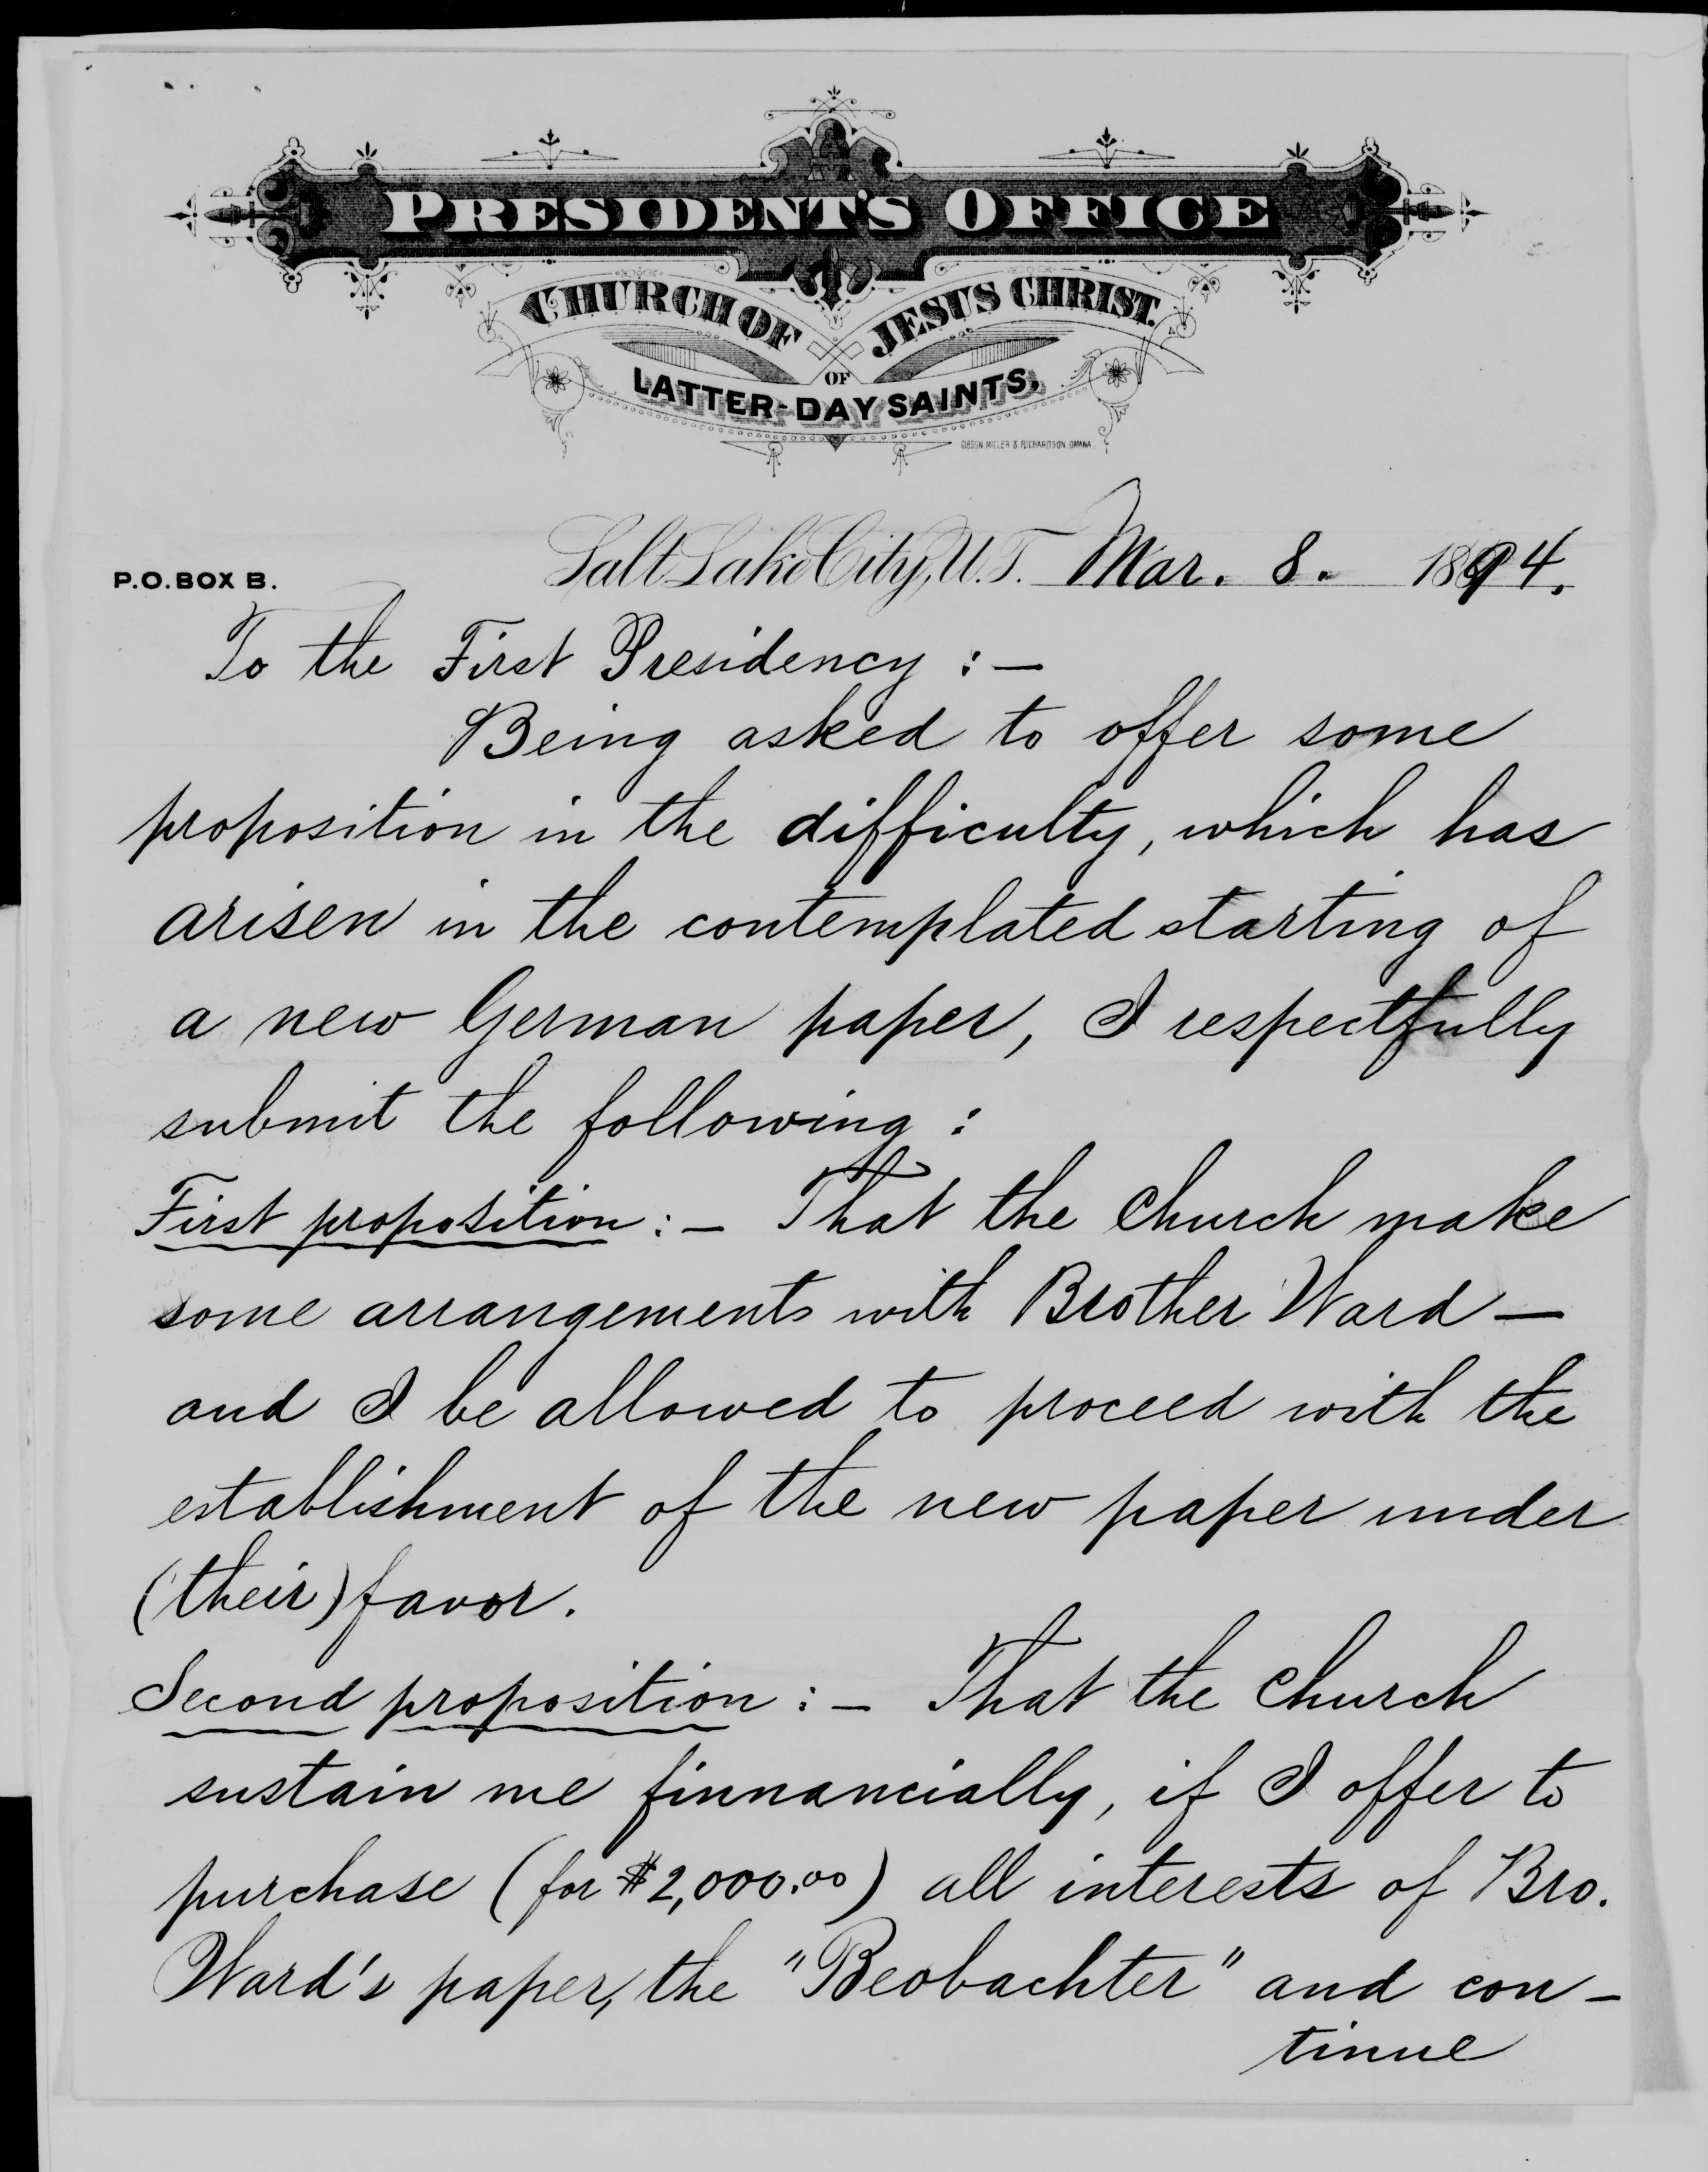 PRESIDENT'S OFFICE
CHURCH OF JESUS CHRIST.
OF
LATTER-DAY SAINTS.
GIBSON MILLER & RICHARDSON. OMAHA.
P.O. BOX B.
Salt Lake City, U.T. Mar. 8. 1894.
To the First Presidency :—
Being asked to offer some
proposition in the difficulty, which has
arisen in the contemplated starting of
a new German paper, I respectfully
submit the following :
First proposition :— That the Church make
some arrangements with Brother Ward —
and I be allowed to proceed with the
establishment of the new paper under
(their) favor.
Second proposition :— That the Church
sustain me finnancially, if I offer to
purchase (for $2,000.00) all interests of Bro.
Ward's paper, the "Beobachter" and con-
tinue